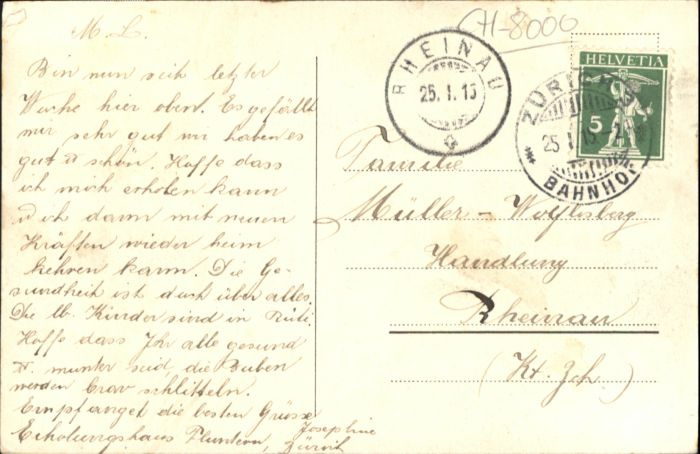 M. L.
Bin nun seit letzter
Woche hier oben. Es gefällt
mir sehr gut wir haben es
gut u schön. Hoffe dass
ich mich erholen kann
u ich dann mit neuen
Kräften wieder heim
kehren kann. Die Ge-
sundheit ist doch über alles.
Die lb. Kinder sind in Rüti
Hoffe dass Ihr alle gesund
u. munter seid, die Buben
werden brav schlitteln.
Empfanget die besten Grüsse
Josephine
Erholungshaus Fluntern, Zürich
CH-8000
RHEINAU
25. I. 15
HELVETIA
5
ZÜRICH
25 I 15
BAHNHOF
Familie
Müller - Wolfensberg
Handlung
Rheinau
(Kt. Zch.)